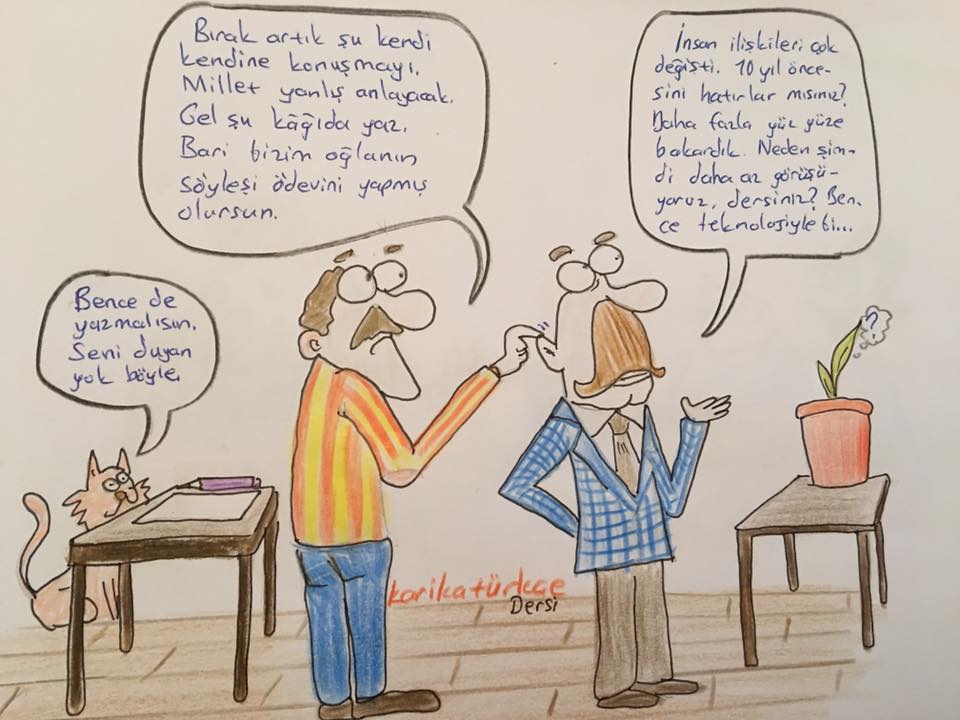 Bırak artık şu kendi
kendine konuşmayı.
Millet yanlış anlayacak.
Gel şu kâğıda yaz.
Bari bizim oğlanın
söyleşi ödevini yapmış
olursun.
İnsan ilişkileri çok
değişti. 10 yıl önce-
sini hatırlar mısınız?
Daha fazla yüz yüze
bakardık. Neden şim-
di daha az görüşü-
yoruz, dersiniz? Ben-
ce teknolojiyle bi...
Bence de
yazmalısın.
Seni duyan
yok böyle.
?
karikatürkçe
Dersi